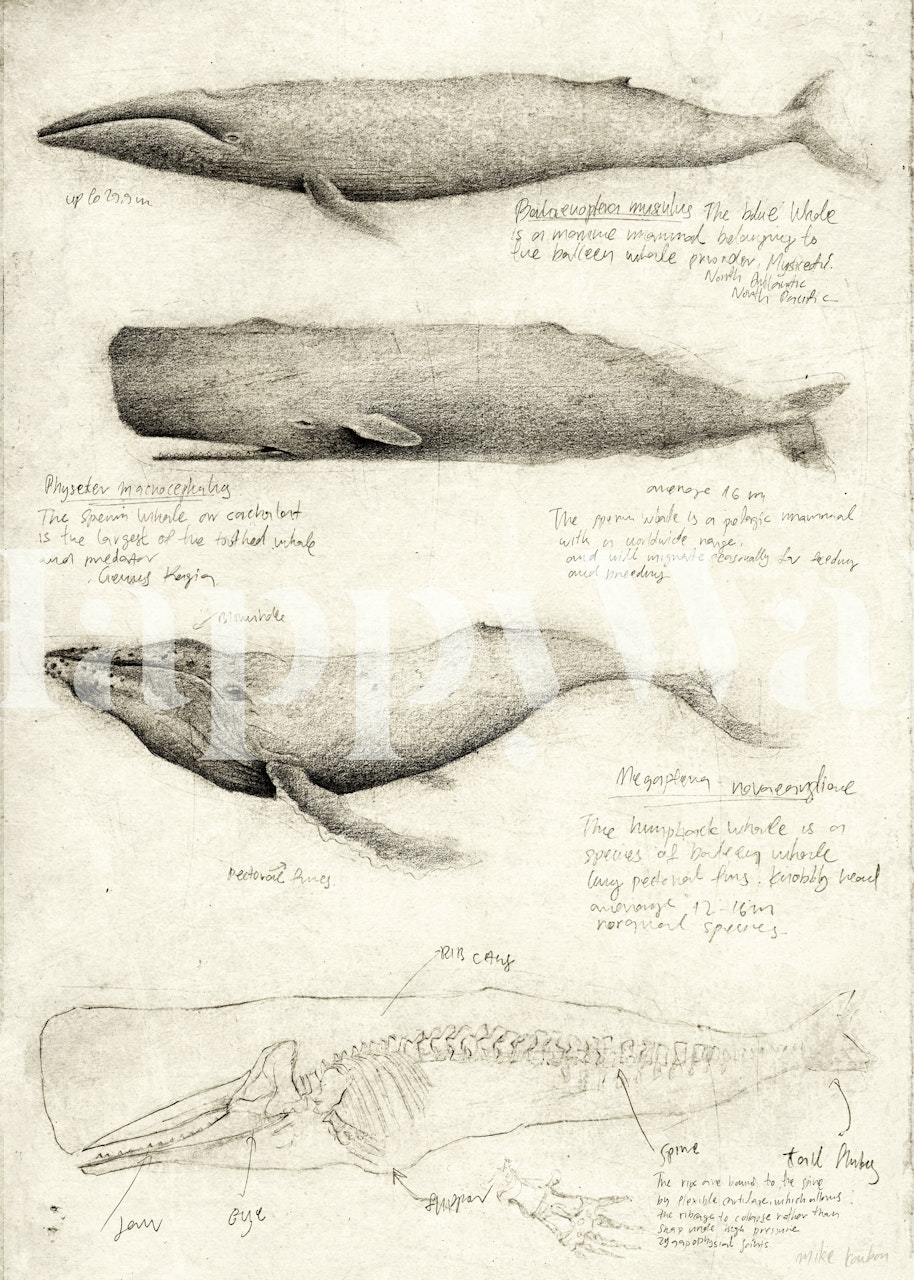 up to 29,9 m
Balaenoptera musculus The blue Whale
is a marine mammal belonging to
the baleen whale
Mysticeti.
North Atlantic
North Pacific
Physeter macrocephalus
The sperm whale or cachalot
is the largest of the toothed whale
and predator
Genus Kogia
average 16 m
The sperm whale is a pelagic mammal
with a worldwide range.
and will migrate seasonally for feeding
and breeding
Blowhole
HappyWa
Megaptera novaeangliae
The humpback whale is a
species of baleen whale
long pectoral fins. Knobbly head
average 12-16m
rorqual species
Pectoral fins.
RIB cAge
Spine
tail fluke
The rips are bound to the spine
by flexible cartilage, which allows
the ribcage to collapse rather than
snap under high pressure
zygapophysial joints
flipper
Jaw
Eye
mike koubou